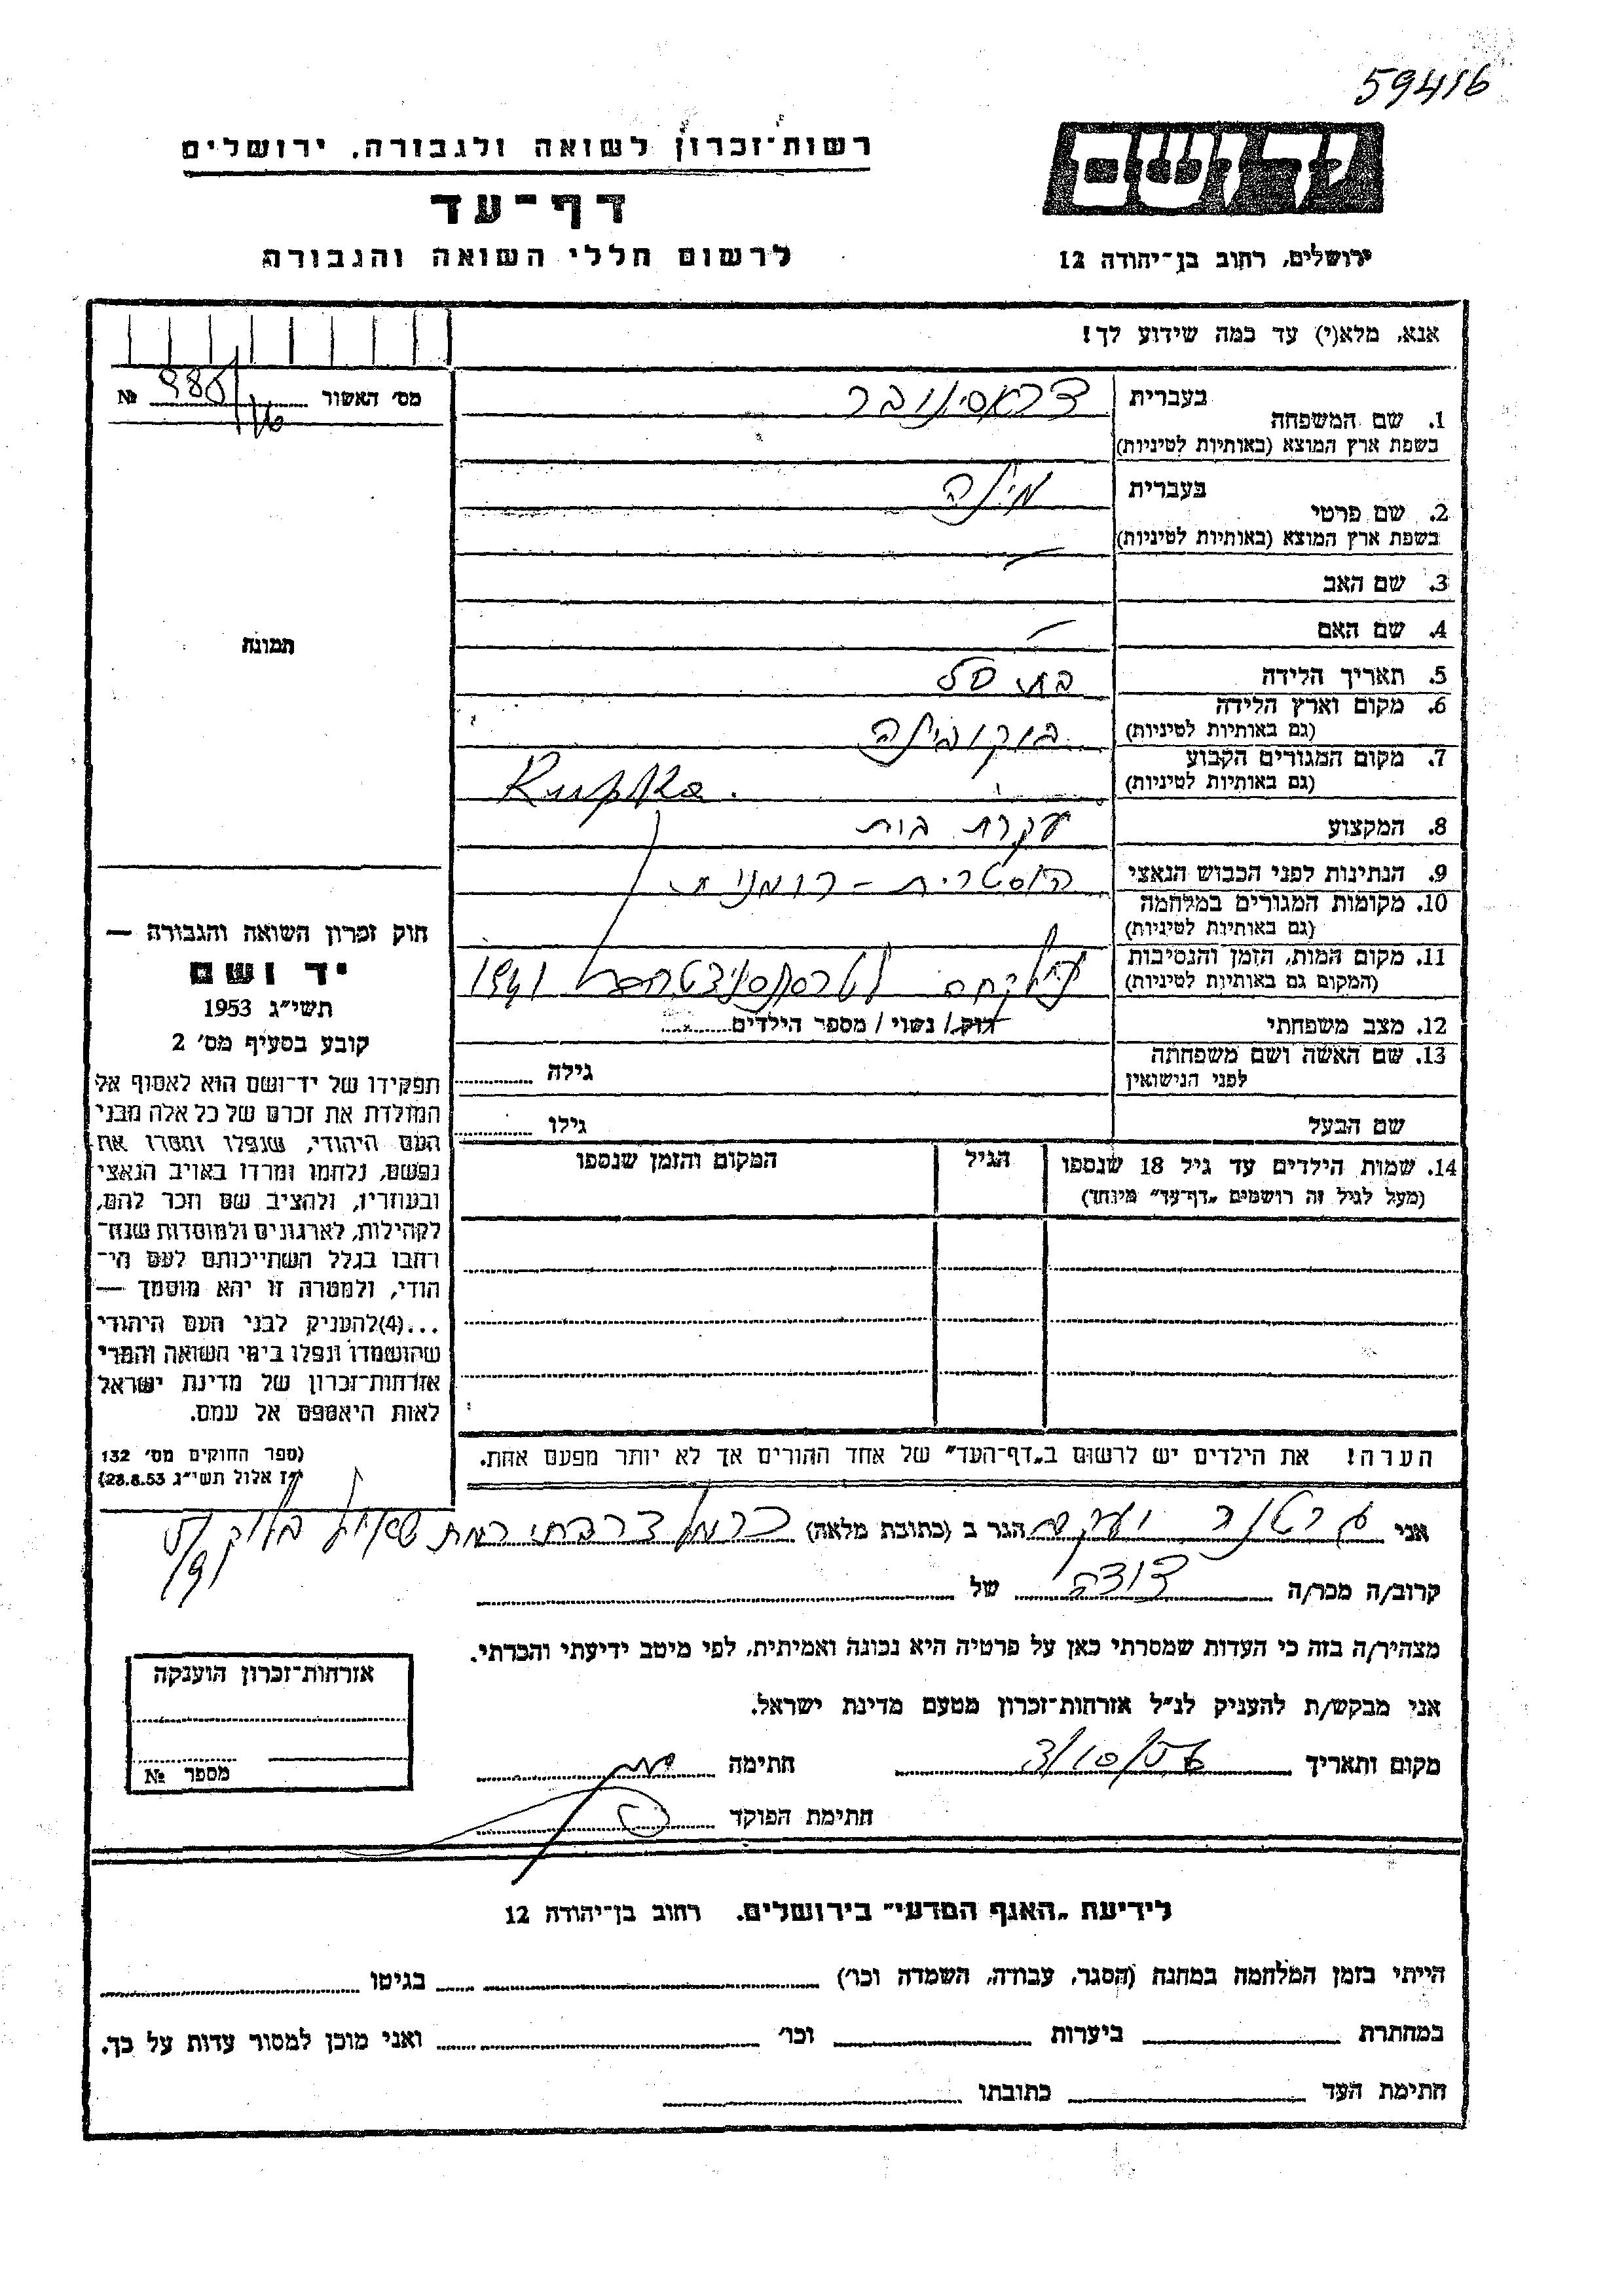 59416
רשות־זכרון לשואה ולגבורה, ירושלים
דף־עד
לרשום חללי השואה והגבורה
יד ושם
ירושלים, רחוב בן־יהודה 12
אנא, מלא(י) עד כמה שידוע לך!
מס׳ האשור 986/16 №
1. שם המשפחה בעברית
בשפת ארץ המוצא (באותיות לטיניות)
2. שם פרטי בעברית מינה
בשפת ארץ המוצא (באותיות לטיניות)
3. שם האב
4. שם האם
5. תאריך הלידה בת 50
6. מקום וארץ הלידה בוקובינה
(גם באותיות לטיניות)
7. מקום המגורים הקבוע Rupka
(גם באותיות לטיניות)
8. המקצוע עקרת בית
9. הנתינות לפני הכבוש הנאצי אוסטרית - רומנית
10. מקומות המגורים במלחמה
(גם באותיות לטיניות)
11. מקום המות, הזמן והנסיבות 1941
(המקום גם באותיות לטיניות)
12. מצב משפחתי רוק / נשוי / מספר הילדים
13. שם האשה ושם משפחתה גילה
לפני הנישואין
שם הבעל גילו
14. שמות הילדים עד גיל 18 שנספו הגיל המקום והזמן שנספו
(מעל לגיל זה רושמים „דף־עד״ מיוחד)
תמונה
חוק זכרון השואה והגבורה —
יד ושם
תשי״ג 1953
קובע בסעיף מס׳ 2
תפקידו של יד־ושם הוא לאסוף אל
המולדת את זכרם של כל אלה מבני
העם היהודי, שנפלו ומסרו את
נפשם, נלחמו ומרדו באויב הנאצי
ובעוזריו, ולהציב שם וזכר להם,
לקהילות, לארגונים ולמוסדות שנח־
רבו בגלל השתייכותם לעם הי־
הודי, ולמטרה זו יהא מוסמך —
...(4)להעניק לבני העם היהודי
שהושמדו ונפלו בימי השואה והמרי
אזרחות־זכרון של מדינת ישראל
לאות היאספם אל עמם.
(ספר החוקים מס׳ 132
י״ז אלול תשי״ג 28.8.53)
הערה! את הילדים יש לרשום ב„דף־העד״ של אחד ההורים אך לא יותר מפעם אחת.
אני יעקב הגר ב (כתובת מלאה)
קרוב/ה מכר/ה דודה של
מצהיר/ה בזה כי העדות שמסרתי כאן על פרטיה היא נכונה ואמיתית, לפי מיטב ידיעתי והכרתי.
אני מבקש/ת להעניק לנ״ל אזרחות־זכרון מטעם מדינת ישראל.
מקום ותאריך 3/10/56 חתימה
חתימת הפוקד
אזרחות־זכרון הוענקה
מספר №
לידיעת „האגף המדעי״ בירושלים, רחוב בן־יהודה 12
הייתי בזמן המלחמה במחנה (הסגר, עבודה, השמדה וכו׳) בגיטו
במחתרת ביערות וכו׳ ואני מוכן למסור עדות על כך.
חתימת העד כתובתו